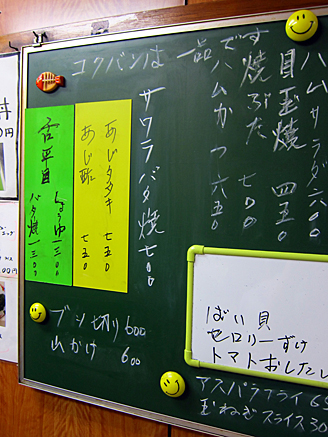 コクバンは一品です
ハムサラダ 六〇〇
目玉焼 四五〇
焼ぶた 七〇〇
ハムかつ 六五〇
サワラバタ焼 七〇〇
あじタタキ 七五〇
あじ酢 七五〇
舌平目
しょうゆ 一三〇〇
バタ焼 一三〇〇
ブツ切り 600
山かけ 600
ばい貝
セロリーづけ
トマトおしたし
アスパラフライ 6
玉ねぎスライス 30
丼
0円
00円